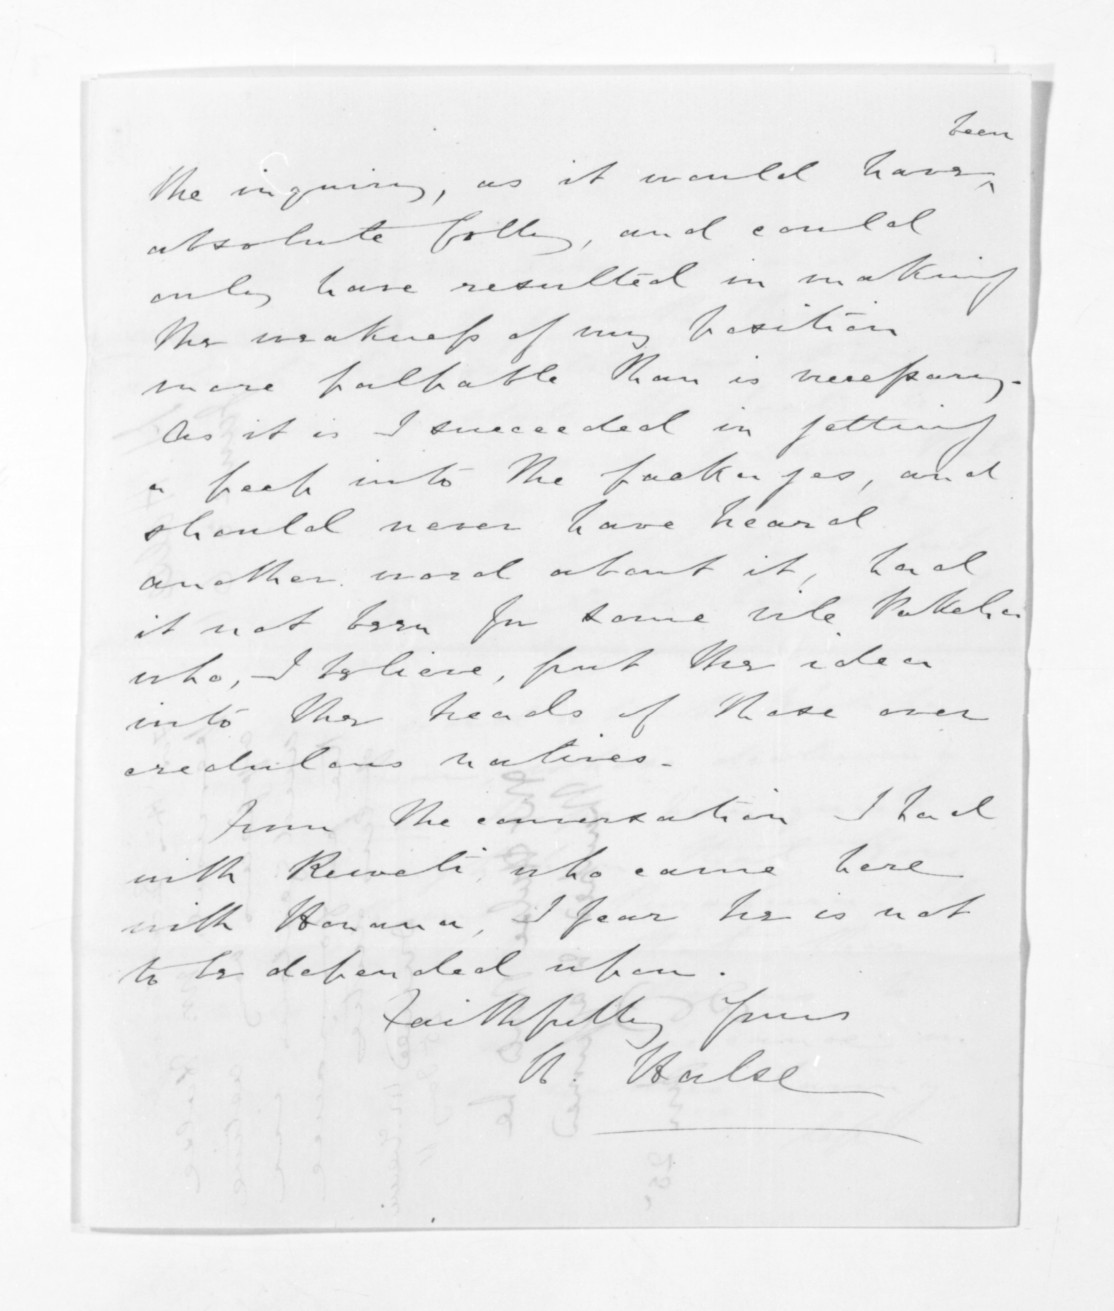 been
the inquiry, as it would have ^
absolute folly, and could
only have resulted in making
the weakness of my position
more palpable than is necessary.
As it is I succeeded in getting
a peep into the packages, and
should never have heard
another word about it, had
it not been for some vile Pakeha
who, I believe, put the idea
into the heads of those over
credulous natives.
From the conversation I had
with Reweti, who came here
with Honana, I fear he is not
to be depended upon.
Faithfully yours
H. Halse